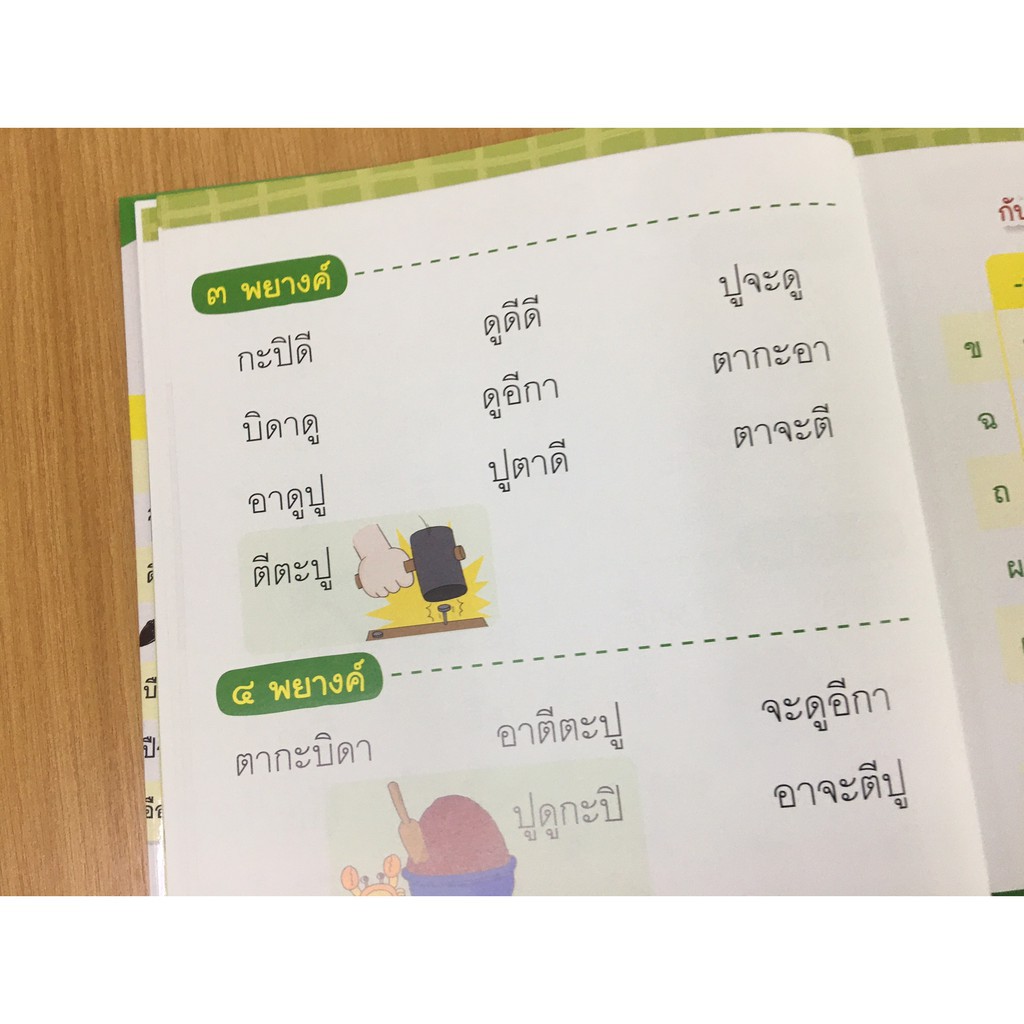 ๓ พยางค์
กะปิดี ดูดีดี ปูจะดู
บิดาดู ดูอีกา ตากะอา
อาดูปู ปูตาดี ตาจะตี
ตีตะปู
๔ พยางค์
ตากะบิดา อาตีตะปู จะดูอีกา
ปูดูกะปิ อาจะตีปู
ข
ฉ
ถ